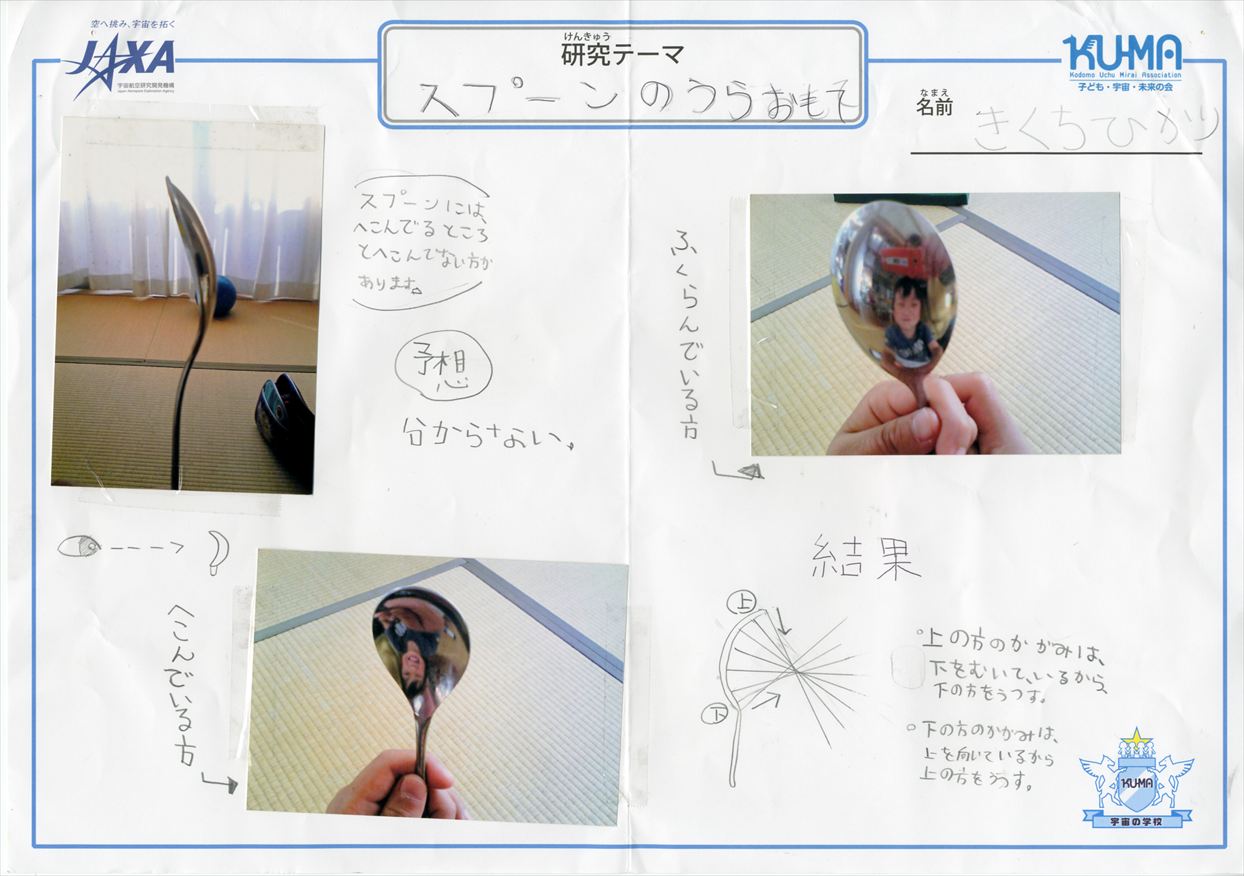 空へ挑み、宇宙を拓く
JAXA
宇宙航空研究開発機構
Japan Aerospace Exploration Agency
けんきゅう
研究テーマ
スプーンのうらおもて
KU-MA
Kodomo Uchu Mirai Association
子ども・宇宙・未来の会
なまえ
名前
きくちひかり
スプーンには、
へこんでるところ
とへこんでない方が
あります。
予想
分からない。
ふくらんでいる方
へこんでいる方
結果
上
下
。上の方のかがみは、
下をむいて、いるから、
下の方をうつす。
。下の方のかがみは、
上を向いているから
上の方をうつす。
KUMA
宇宙の学校